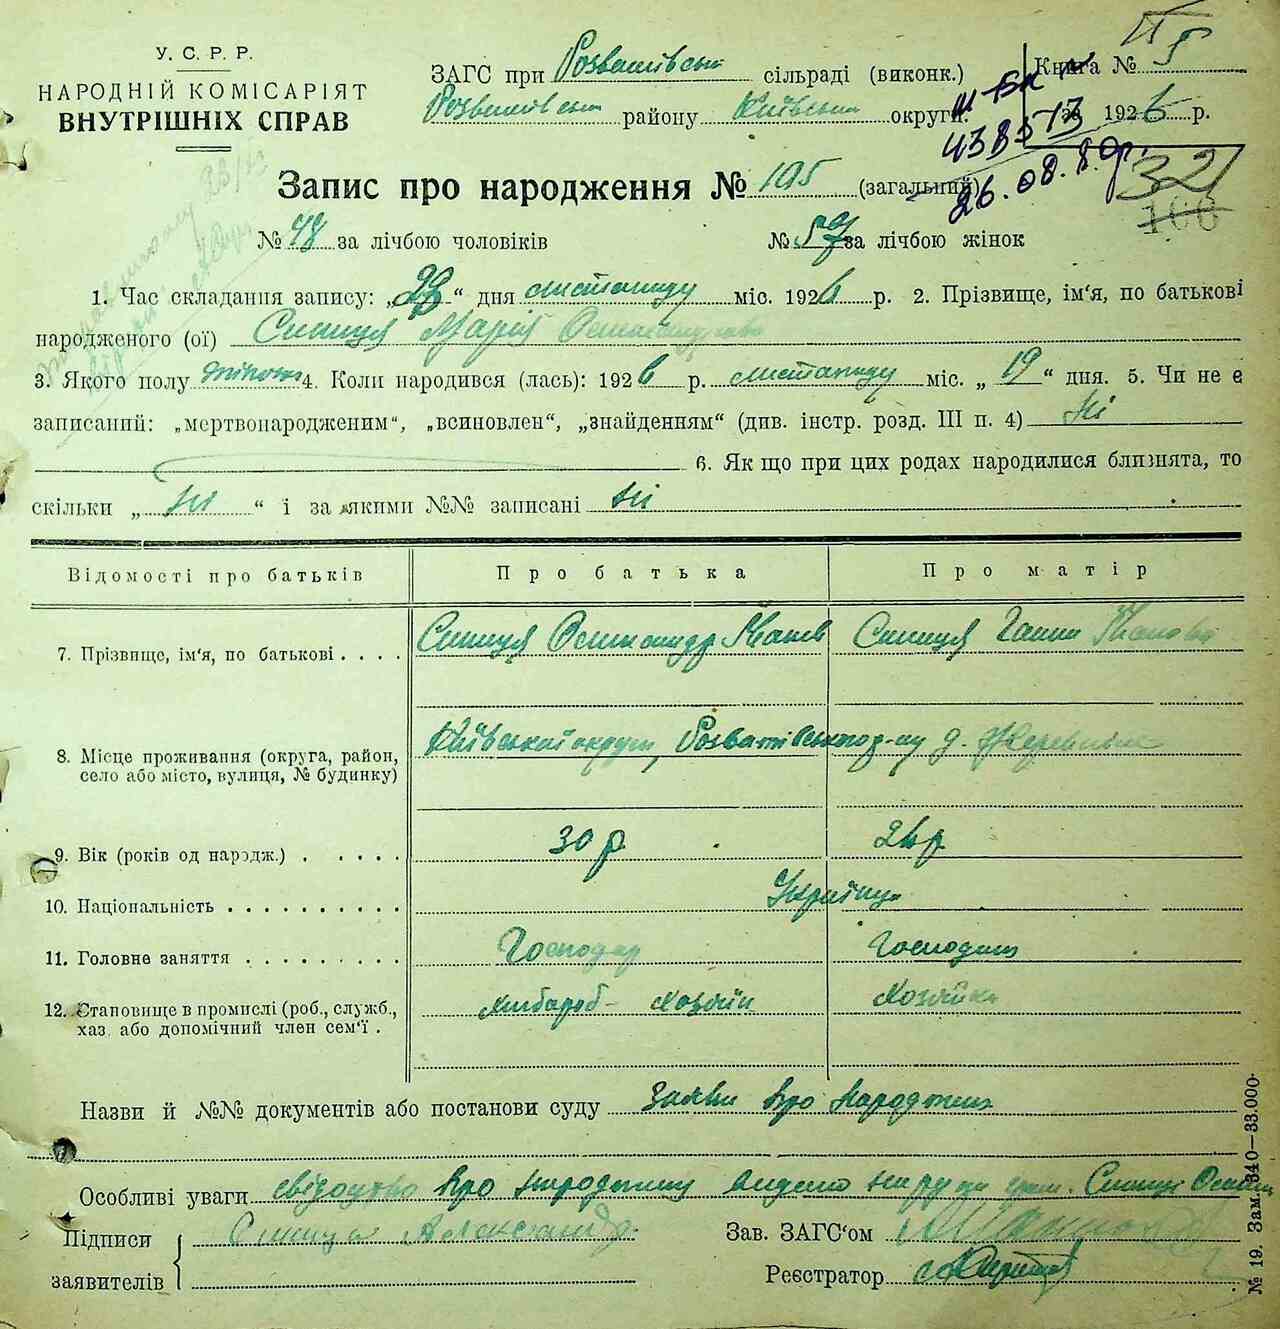 У. С. Р. Р.
НАРОДНІЙ КОМІСАРІЯТ
ВНУТРІШНІХ СПРАВ
ЗАГС при Розважівськ сільраді (виконк.) Книга № 5
Розважівськ району Київськ округи. за 1926 р.
III-БК №
438573
26.08.80р.
32
106
Запис про народження № 105 (загальний)
№ 48 за лічбою чоловіків № 57 за лічбою жінок
1. Час складання запису: „23“ дня листопаду міс. 1926 р. 2. Прізвище, ім'я, по батькові
народженого (ої) Синиця Марія
3. Якого полу жіноч 4. Коли народився (лась): 1926 р. листопаду міс. „19“ дня. 5. Чи не є
записаний: „мертвонародженим“, „всиновлен“, „знайденням“ (див. інстр. розд. III п. 4) Ні
6. Як що при цих родах народилися близнята, то
скільки „ні“ і за якими №№ записані ні
Відомості про батьків Про батька Про матір
7. Прізвище, ім'я, по батькові . . . . Синиця Олександр Іванів Синиця Ганна
8. Місце проживання (округа, район, Київської округи, Розважівського р-ну д. Жереви
село або місто, вулиця, № будинку)
9. Вік (років од народж.) . . . . . 30 р. 26 р
10. Національність . . . . . . . . . . Українці
11. Головне заняття . . . . . . . . . Господар Господин
12. Становище в промислі (роб., служб., Хлібароб- хозяїн Хозяйка
хаз. або допомічний член сем'ї .
Назви й №№ документів або постанови суду Заява про народжен
Особливі уваги свідоцтво про народжину видано на руки гром. Синиці
Підписи Синиця Александр Зав. ЗАГС'ом
заявителів Реєстратор
№ 19. Зам. 340—33.000